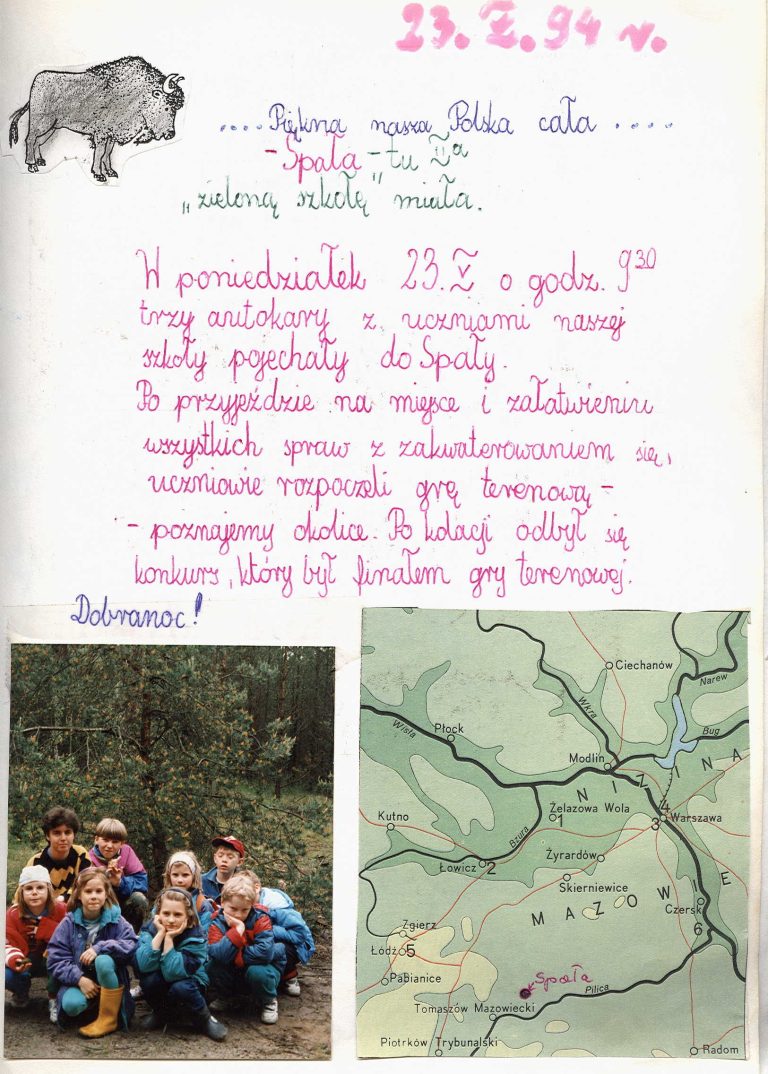 23.V.94 r.
....Piękna nasza Polska cała....
-Spała-tu IIa
„zieloną szkołę” miała.
W poniedziałek 23.V o godz. 9³⁰
trzy autokary z uczniami naszej
szkoły pojechały do Spały.
Po przyjeździe na miejsce i załatwieniu
wszystkich spraw z zakwaterowaniem się,
uczniowie rozpoczeli grę terenową-
-poznajemy okolice. Po kolacji odbył się
konkurs, który był finałem gry terenowej.
Dobranoc!
Ciechanów
Narew
Wkra
Wisła
Płock
Bug
Modlin
NIZINA
Żelazowa Wola
1
4
Kutno
3
Warszawa
Bzura
Łowicz
2
Żyrardów
Skierniewice
MAZOWIE
Czersk
Zgierz
6
Łódź
5
Pabianice
Spała
Pilica
Tomaszów Mazowiecki
Piotrków Trybunalski
Radom